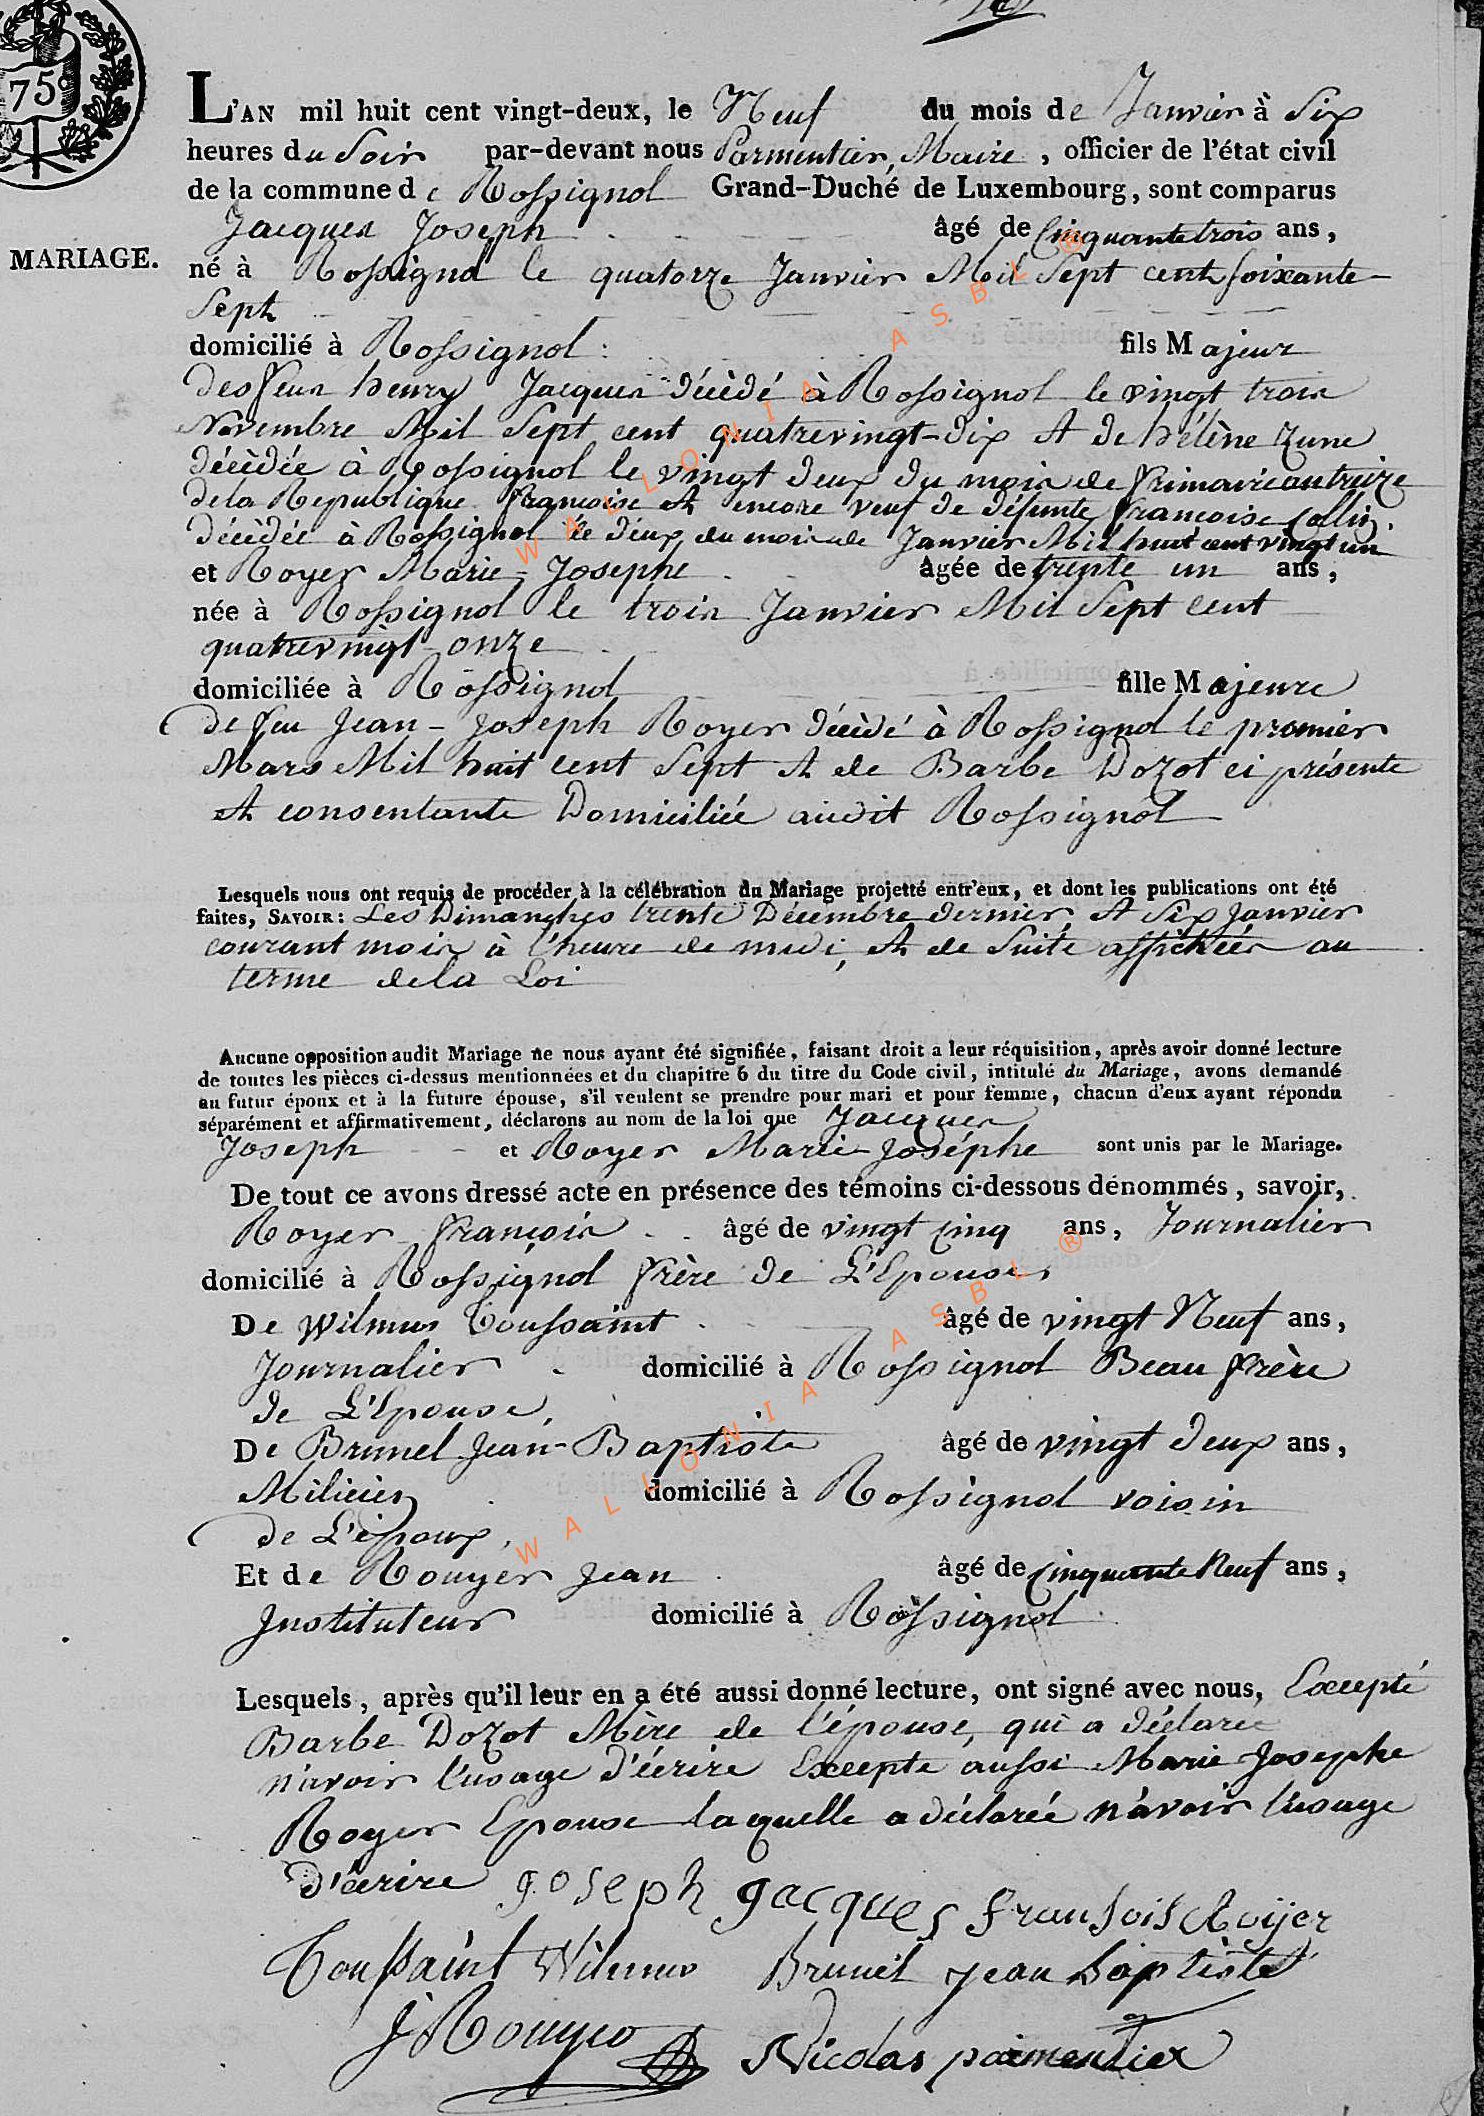 75c
L'AN mil huit cent vingt-deux, le Neuf du mois de Janvier à Six
heures du Soir par-devant nous Parmentier, Maire, officier de l'état civil
de la commune de Rossignol Grand-Duché de Luxembourg, sont comparus
Jacques Joseph âgé de Cinquante trois ans,
MARIAGE.
né à Rossignol le quatorze Janvier Mil Sept cent soixante
Sept
domicilié à Rossignol fils Majeur
des feus henry Jacques décèdé à Rossignol le vingt trois
Novembre Mil Sept cent quatrevingt-dix et de hélène Zune
décèdée à Rossignol le vingt deux du mois de frimaire an treize
de la Republique françoise et encore veuf de défunte françoise Collin
décèdée à Rossignol le deux du mois de Janvier Mil huit cent vingt un
et Royer Marie-Josephe âgée de trente un ans,
née à Rossignol le trois Janvier Mil Sept cent
quatrevingt onze
domiciliée à Rossignol fille Majeure
de feu Jean-Joseph Royer décèdé à Rossignol le premier
Mars Mil huit cent Sept et de Barbe Dozot ci présente
et consentante Domiciliée audit Rossignol
Lesquels nous ont requis de procéder à la célébration du Mariage projetté entr'eux, et dont les publications ont été
faites, SAVOIR: Les Dimanches trente Décembre dernier, et Six Janvier
courant mois à l'heure de midi, et de Suite affichées au
terme de la Loi
Aucune opposition audit Mariage ne nous ayant été signifiée, faisant droit a leur réquisition, après avoir donné lecture
de toutes les pièces ci-dessus mentionnées et du chapitre 6 du titre du Code civil, intitulé du Mariage, avons demandé
au futur époux et à la future épouse, s'il veulent se prendre pour mari et pour femme, chacun d'eux ayant répondu
séparément et affirmativement, déclarons au nom de la loi que Jacques
Joseph et Royer Marie-Joséphe sont unis par le Mariage.
De tout ce avons dressé acte en présence des témoins ci-dessous dénommés, savoir,
Royer françois âgé de vingt cinq ans, Journalier
domicilié à Rossignol frère de L'Epouse,
De Wilmus Toussaint âgé de vingt Neuf ans,
Journalier domicilié à Rossignol Beau frère
de L'Epouse,
De Brunel Jean-Baptiste âgé de vingt deux ans,
Milicien domicilié à Rossignol voisin
de L'époux,
Et de Rouyer Jean âgé de Cinquante Neuf ans,
Instituteur domicilié à Rossignol
Lesquels, après qu'il leur en a été aussi donné lecture, ont signé avec nous, Excepté
Barbe Dozot Mère de l'épouse, qui a déclaree
n'avoir l'usage d'écrire Excepte aussi Marie Josephe
Royer Epouse laquelle a déclarée n'avoir l'usage
d'écrire joseph jacques fransois Roijer
Toussaint Wilmus Brunel jean baptiste
J Rouyer Nicolas parmentier
WALLONIA ASBL ®
WALLONIA ASBL ®